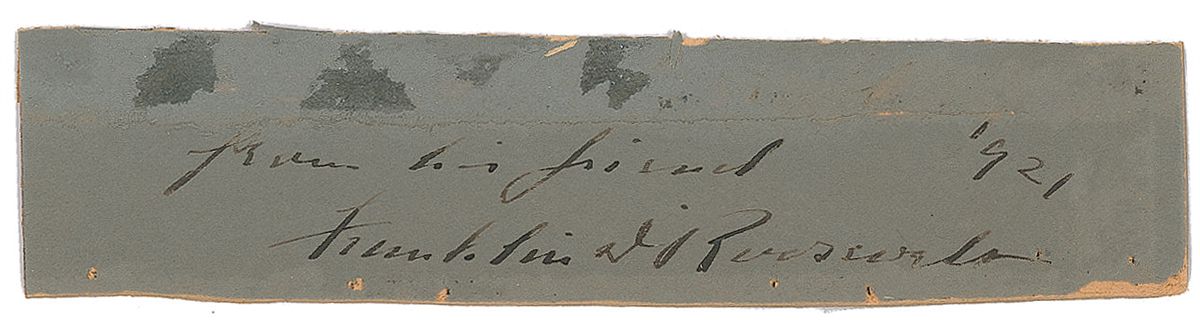 from his friend 1921
Franklin D Roosevelt